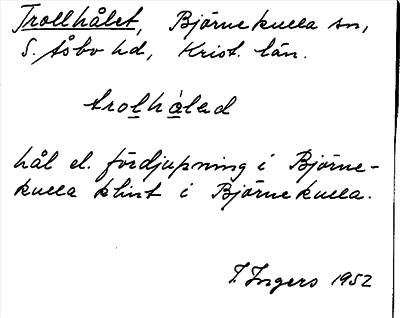 Trollhålet, Björnekulla sn,
S. Åsbo hd, Krist. län.
trolhàlad
hål el. fördjupning i Björne-
kulla klint i Björnekulla.
I. Ingers 1952